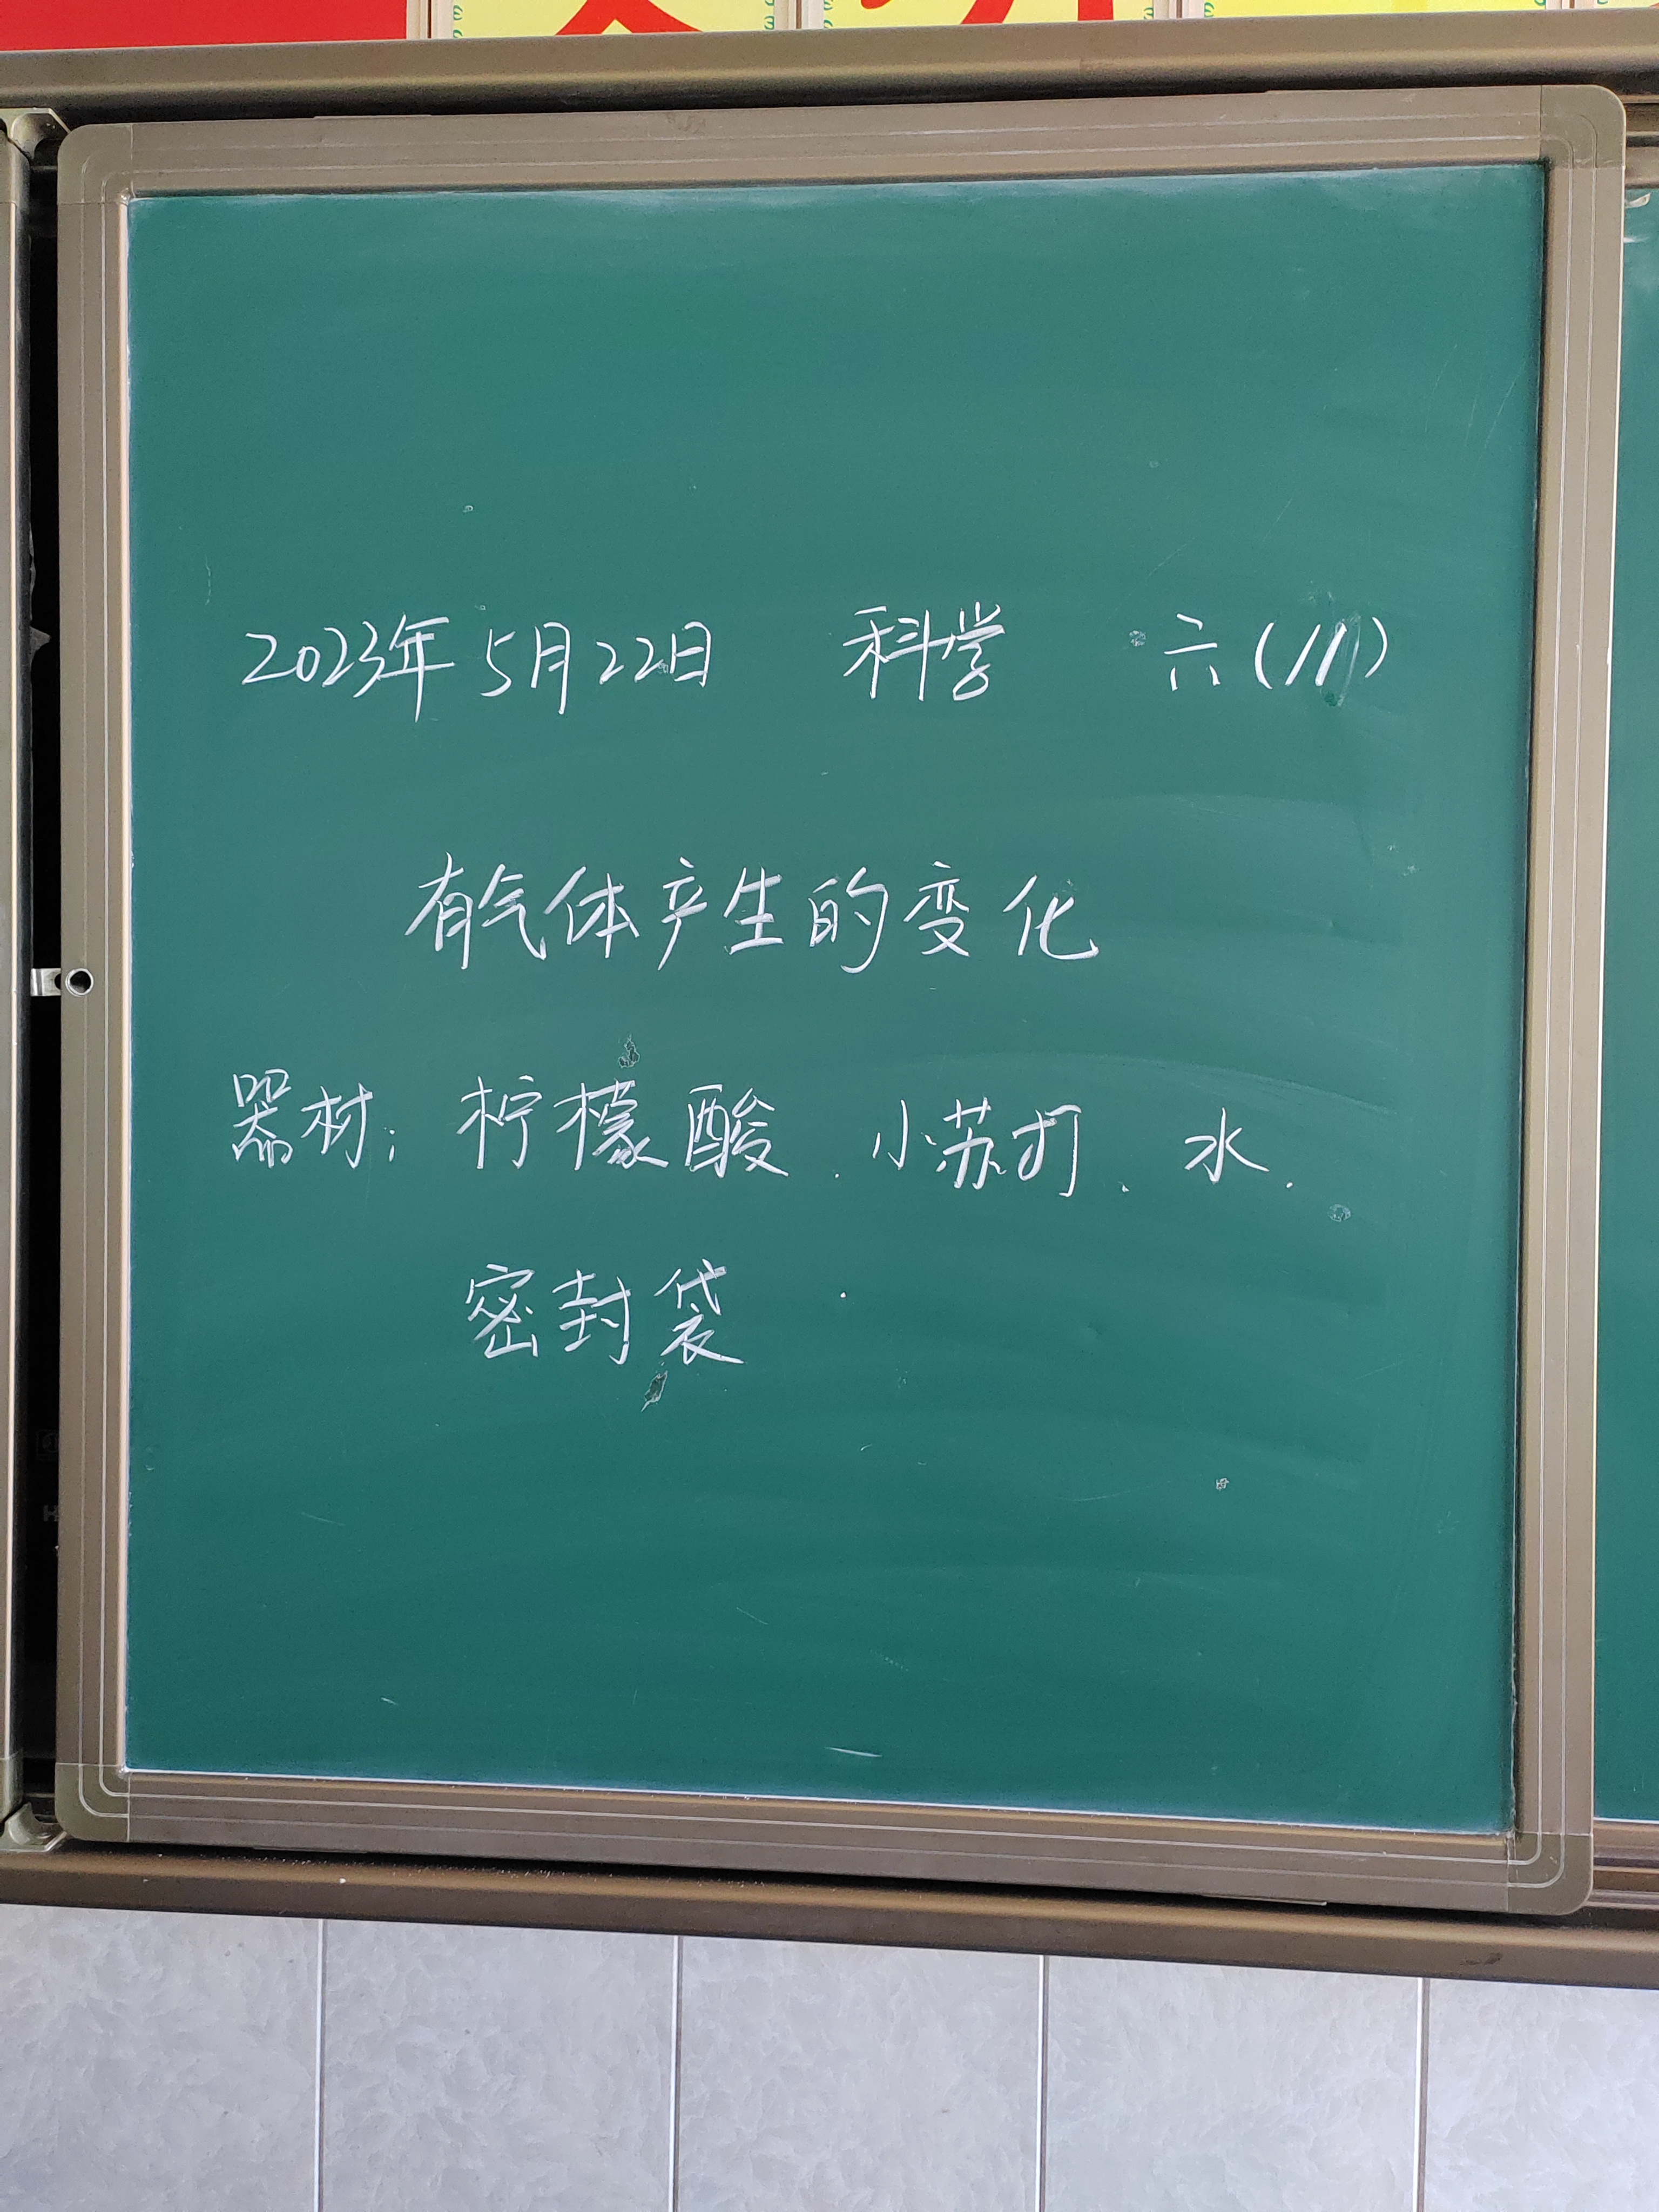 2023年5月22日 科学 六(11)
有气体产生的变化
器材：柠檬酸、小苏打、水、
密封袋